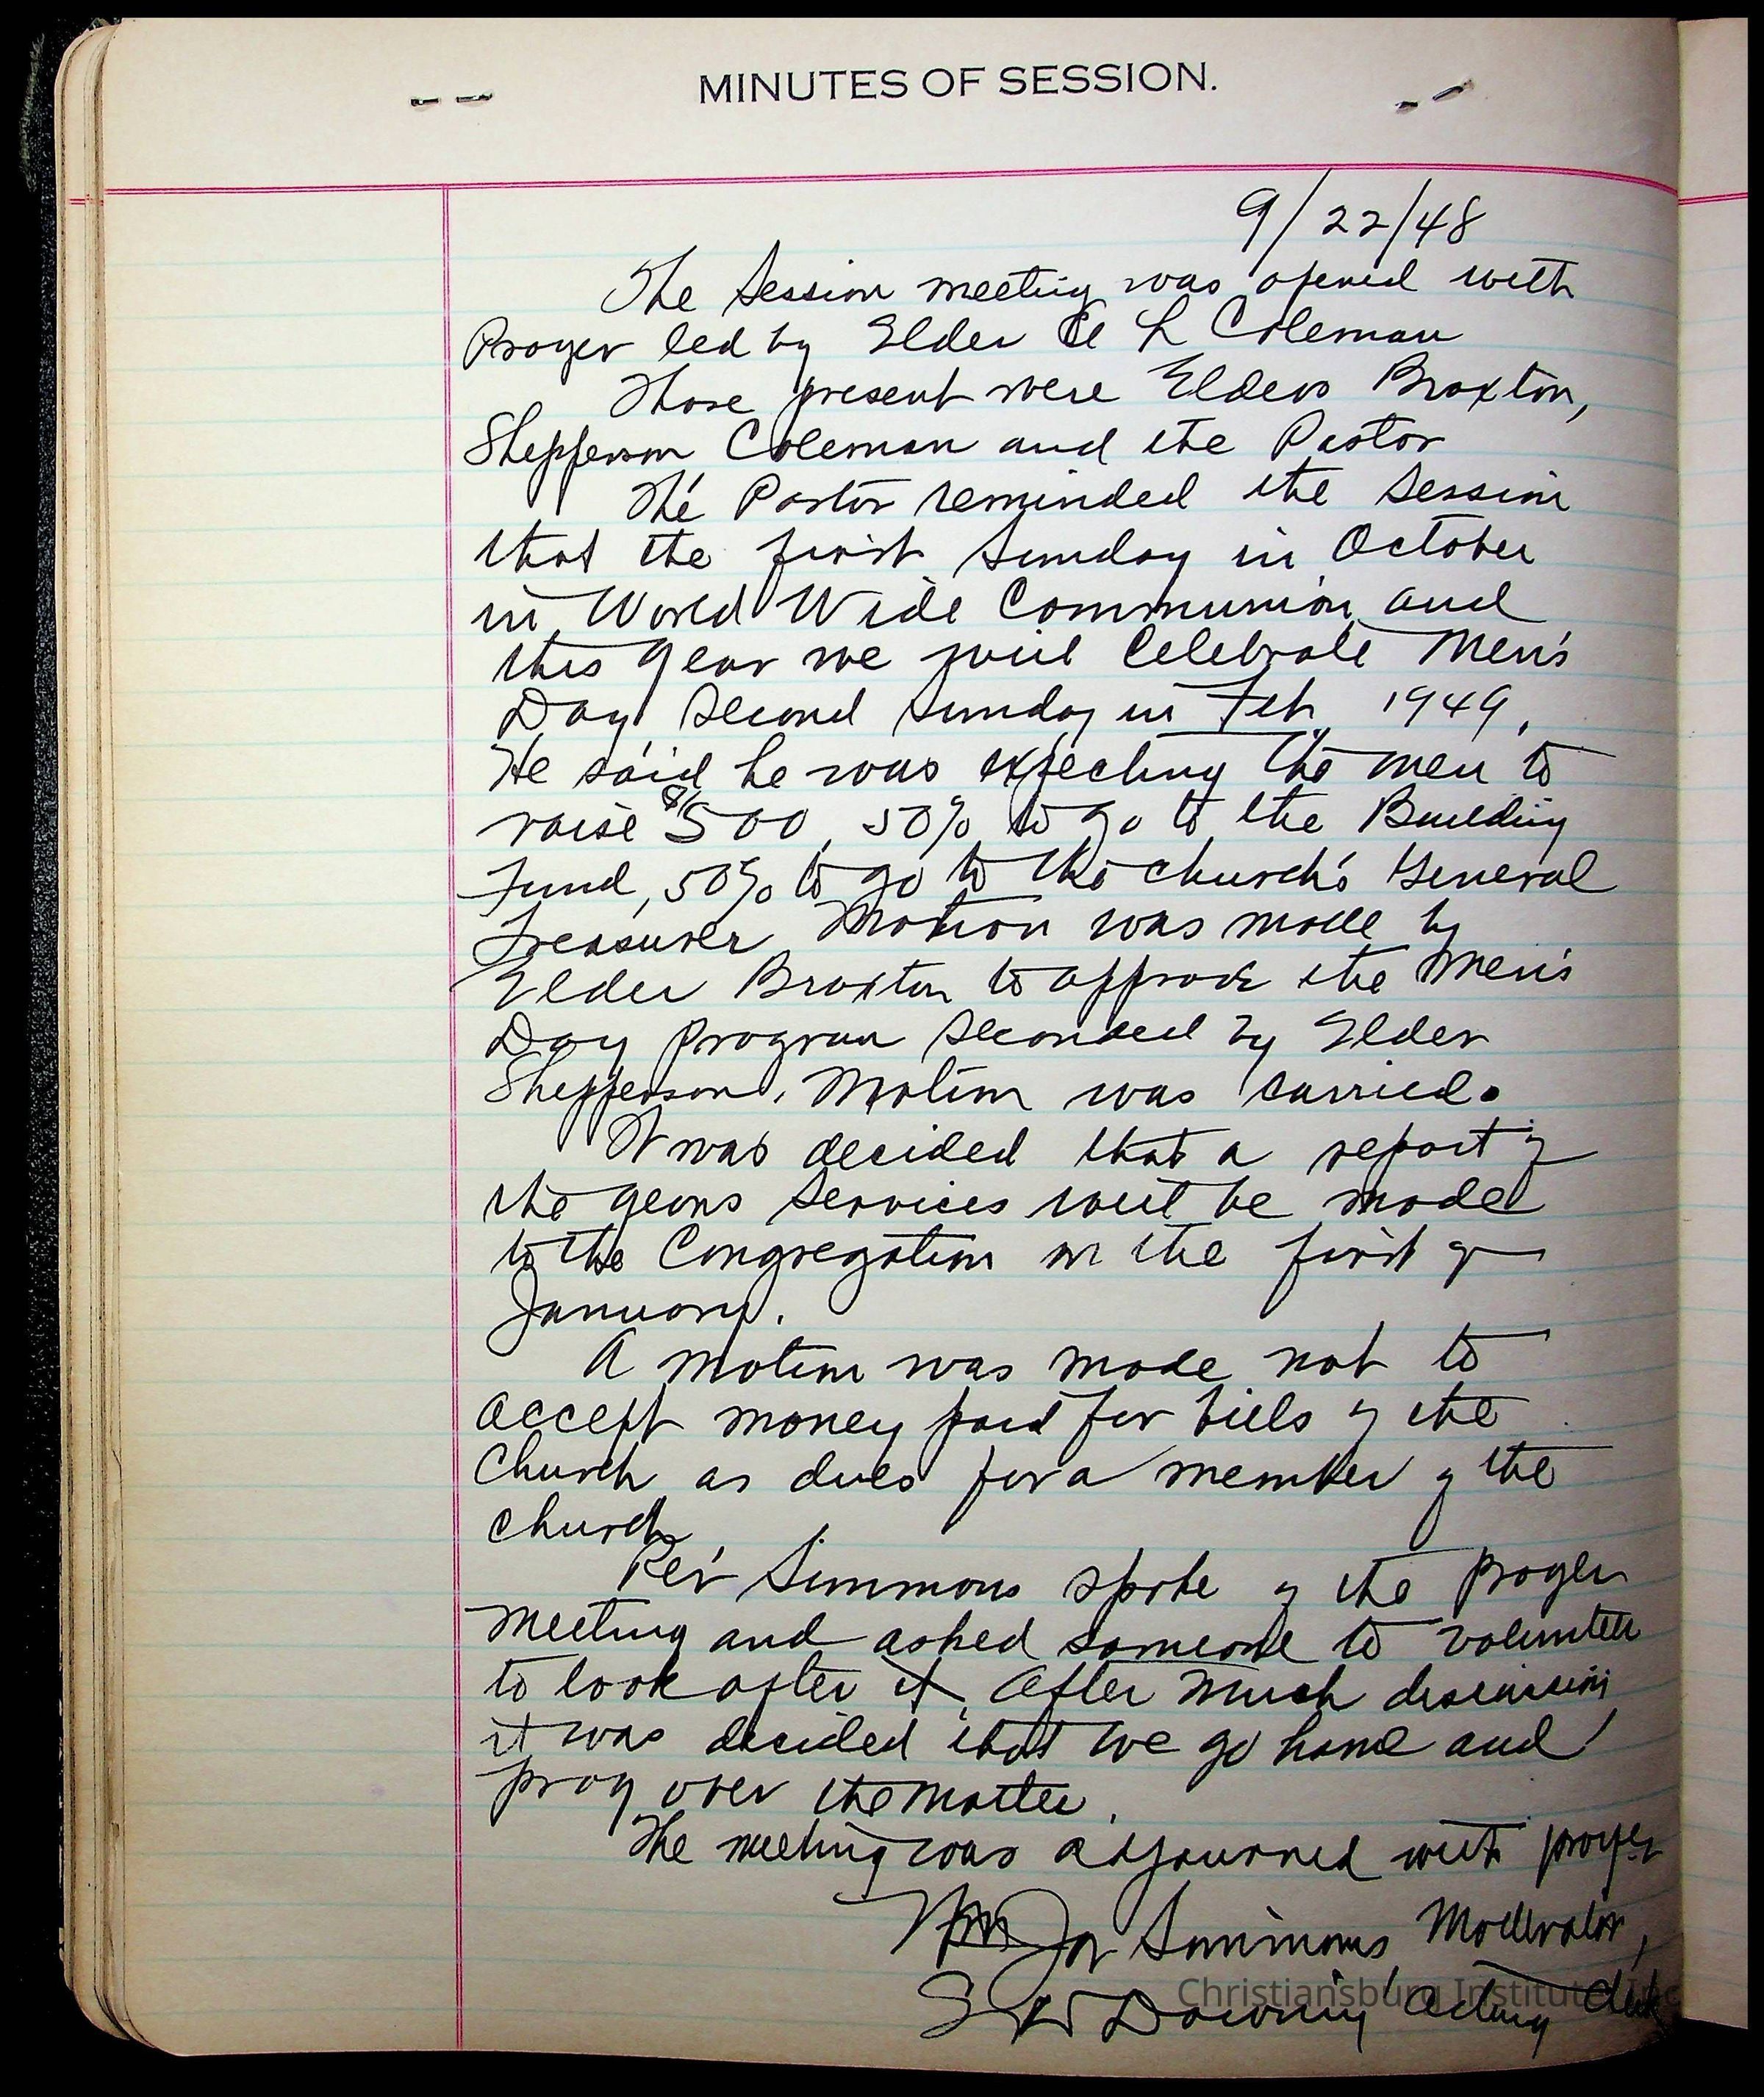 MINUTES OF SESSION.
9/22/48
The Session meeting was opened with
Prayer led by Elder A L Coleman
Those present were Elders Braxton,
Shepperson Coleman and the Pastor
The Pastor reminded the Session
that the first Sunday in October
in World Wide Communion and
this year we will Celebrate Men's
Day, Second Sunday in Feb 1949.
He said he was expecting the men to
raise $500, 50% to go to the Building
Fund, 50% to go to the church's General
Treasurer. Motion was made by
Elder Braxton to approve the Men's
Day program seconded by Elder
Shepperson. Motion was carried.
It was decided that a report of
the years Services will be made
to the Congregation on the first of
January.
A motion was made not to
accept money paid for bills of the
Church as dues for a member of the
church
Rev Simmons spoke of the prayer
meeting and asked someone to volunteer
to look after it. After much discussion
it was decided that we go home and
pray over the matter.
The meeting was adjourned with prayer
Simmons Moderator,
S W Downing Acting Clerk
Christiansburg Institute Inc